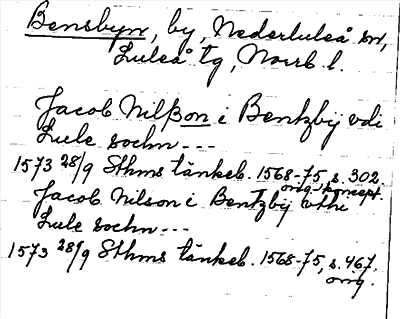 Bensbyn, by, Nederluleå sn,
Luleå tg, Norrb. l.
Jacob Nilßon i Bentzbÿ vdi
Lule sochn ---
1573 28/9 Sthms tänkeb. 1568-75, s. 302
orig. koncept.
Jacob Nilson i Bentzbÿ vthi
Lule sochn ---
1573 28/9 Sthms tänkeb. 1568-75, s. 467.
orig.